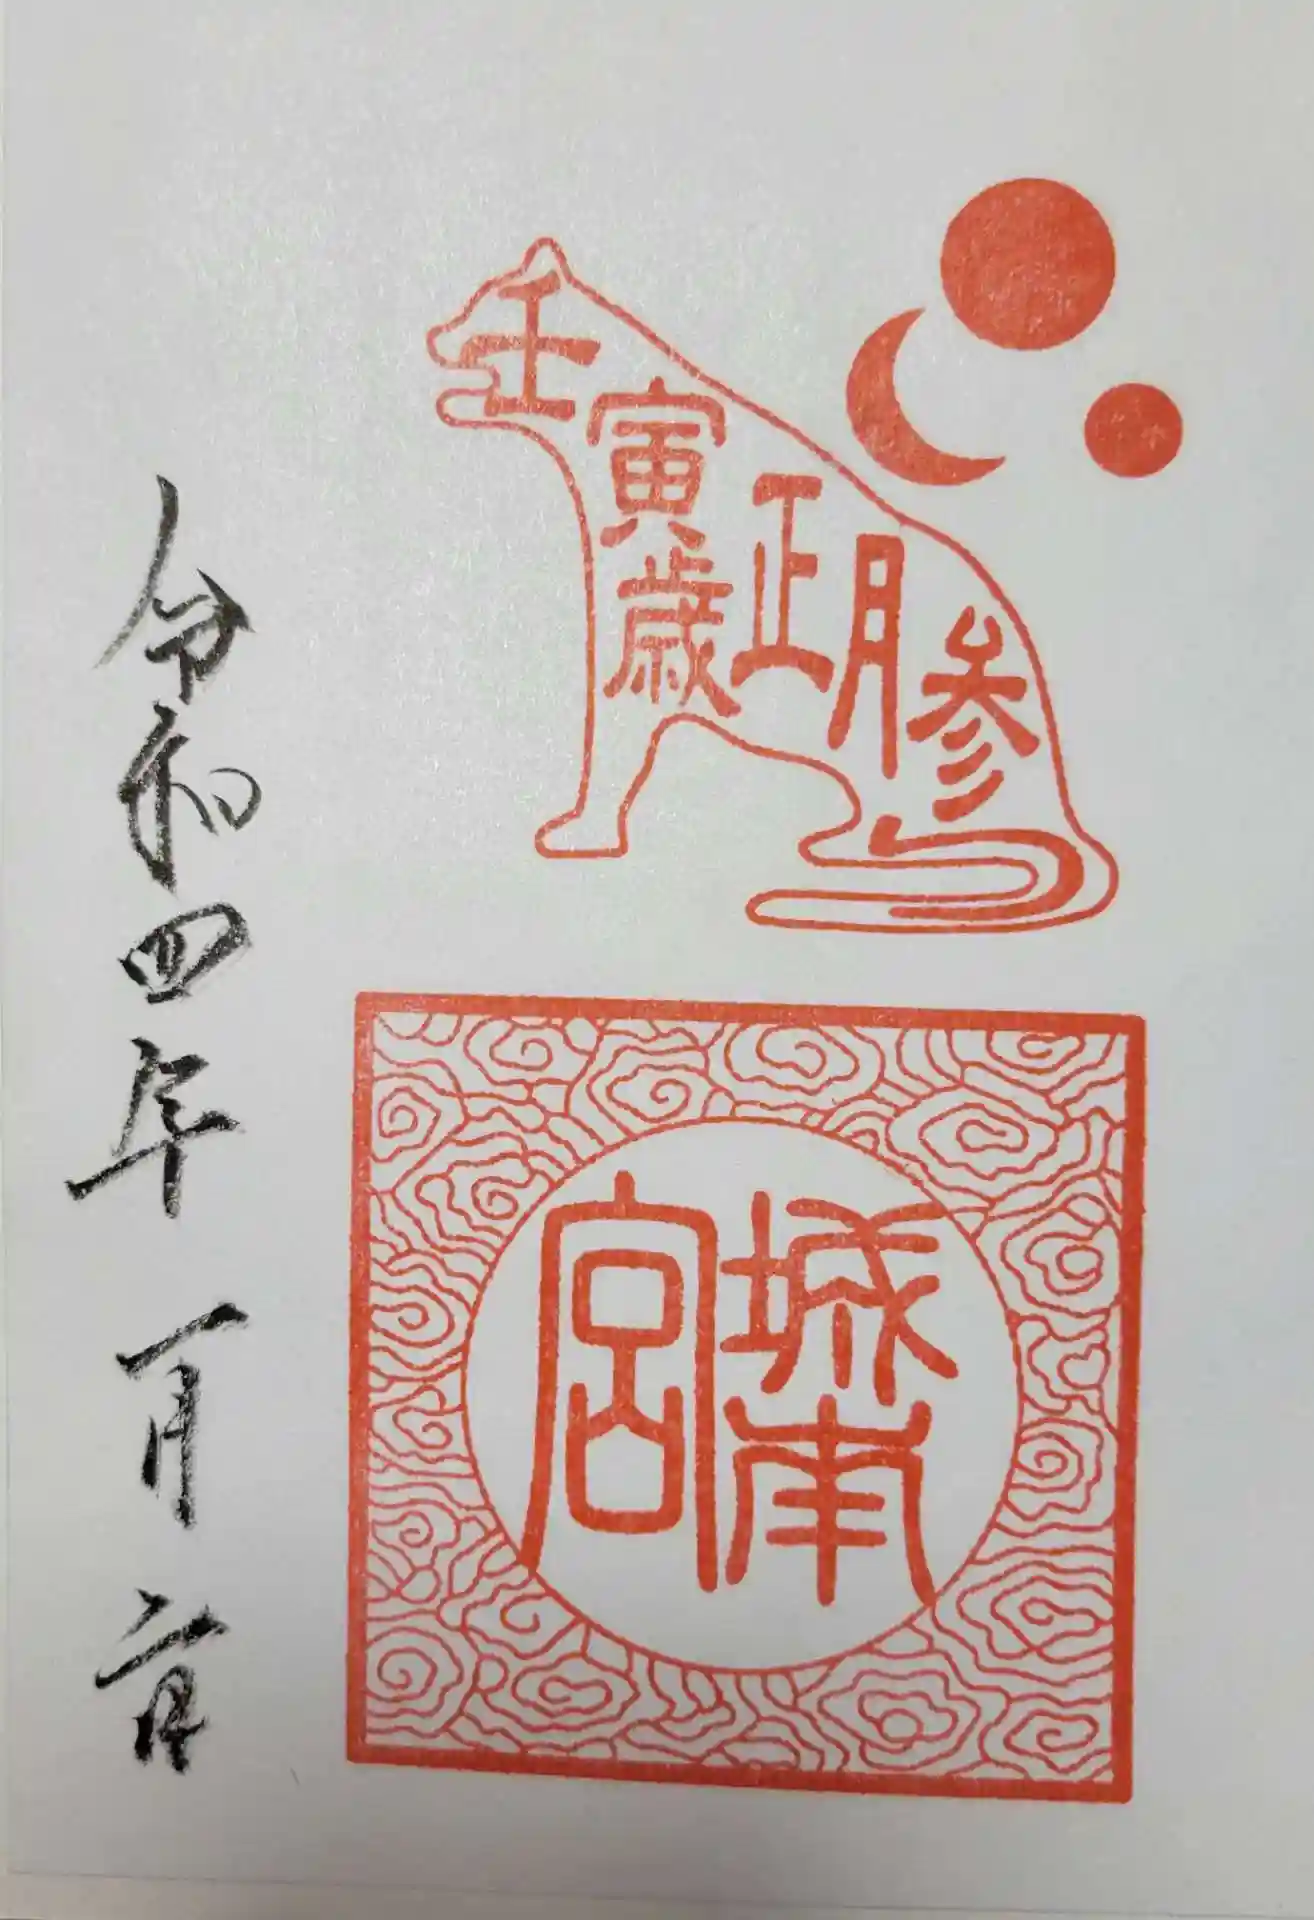 壬寅歳正月参
城南
宮
令和四年一月二日